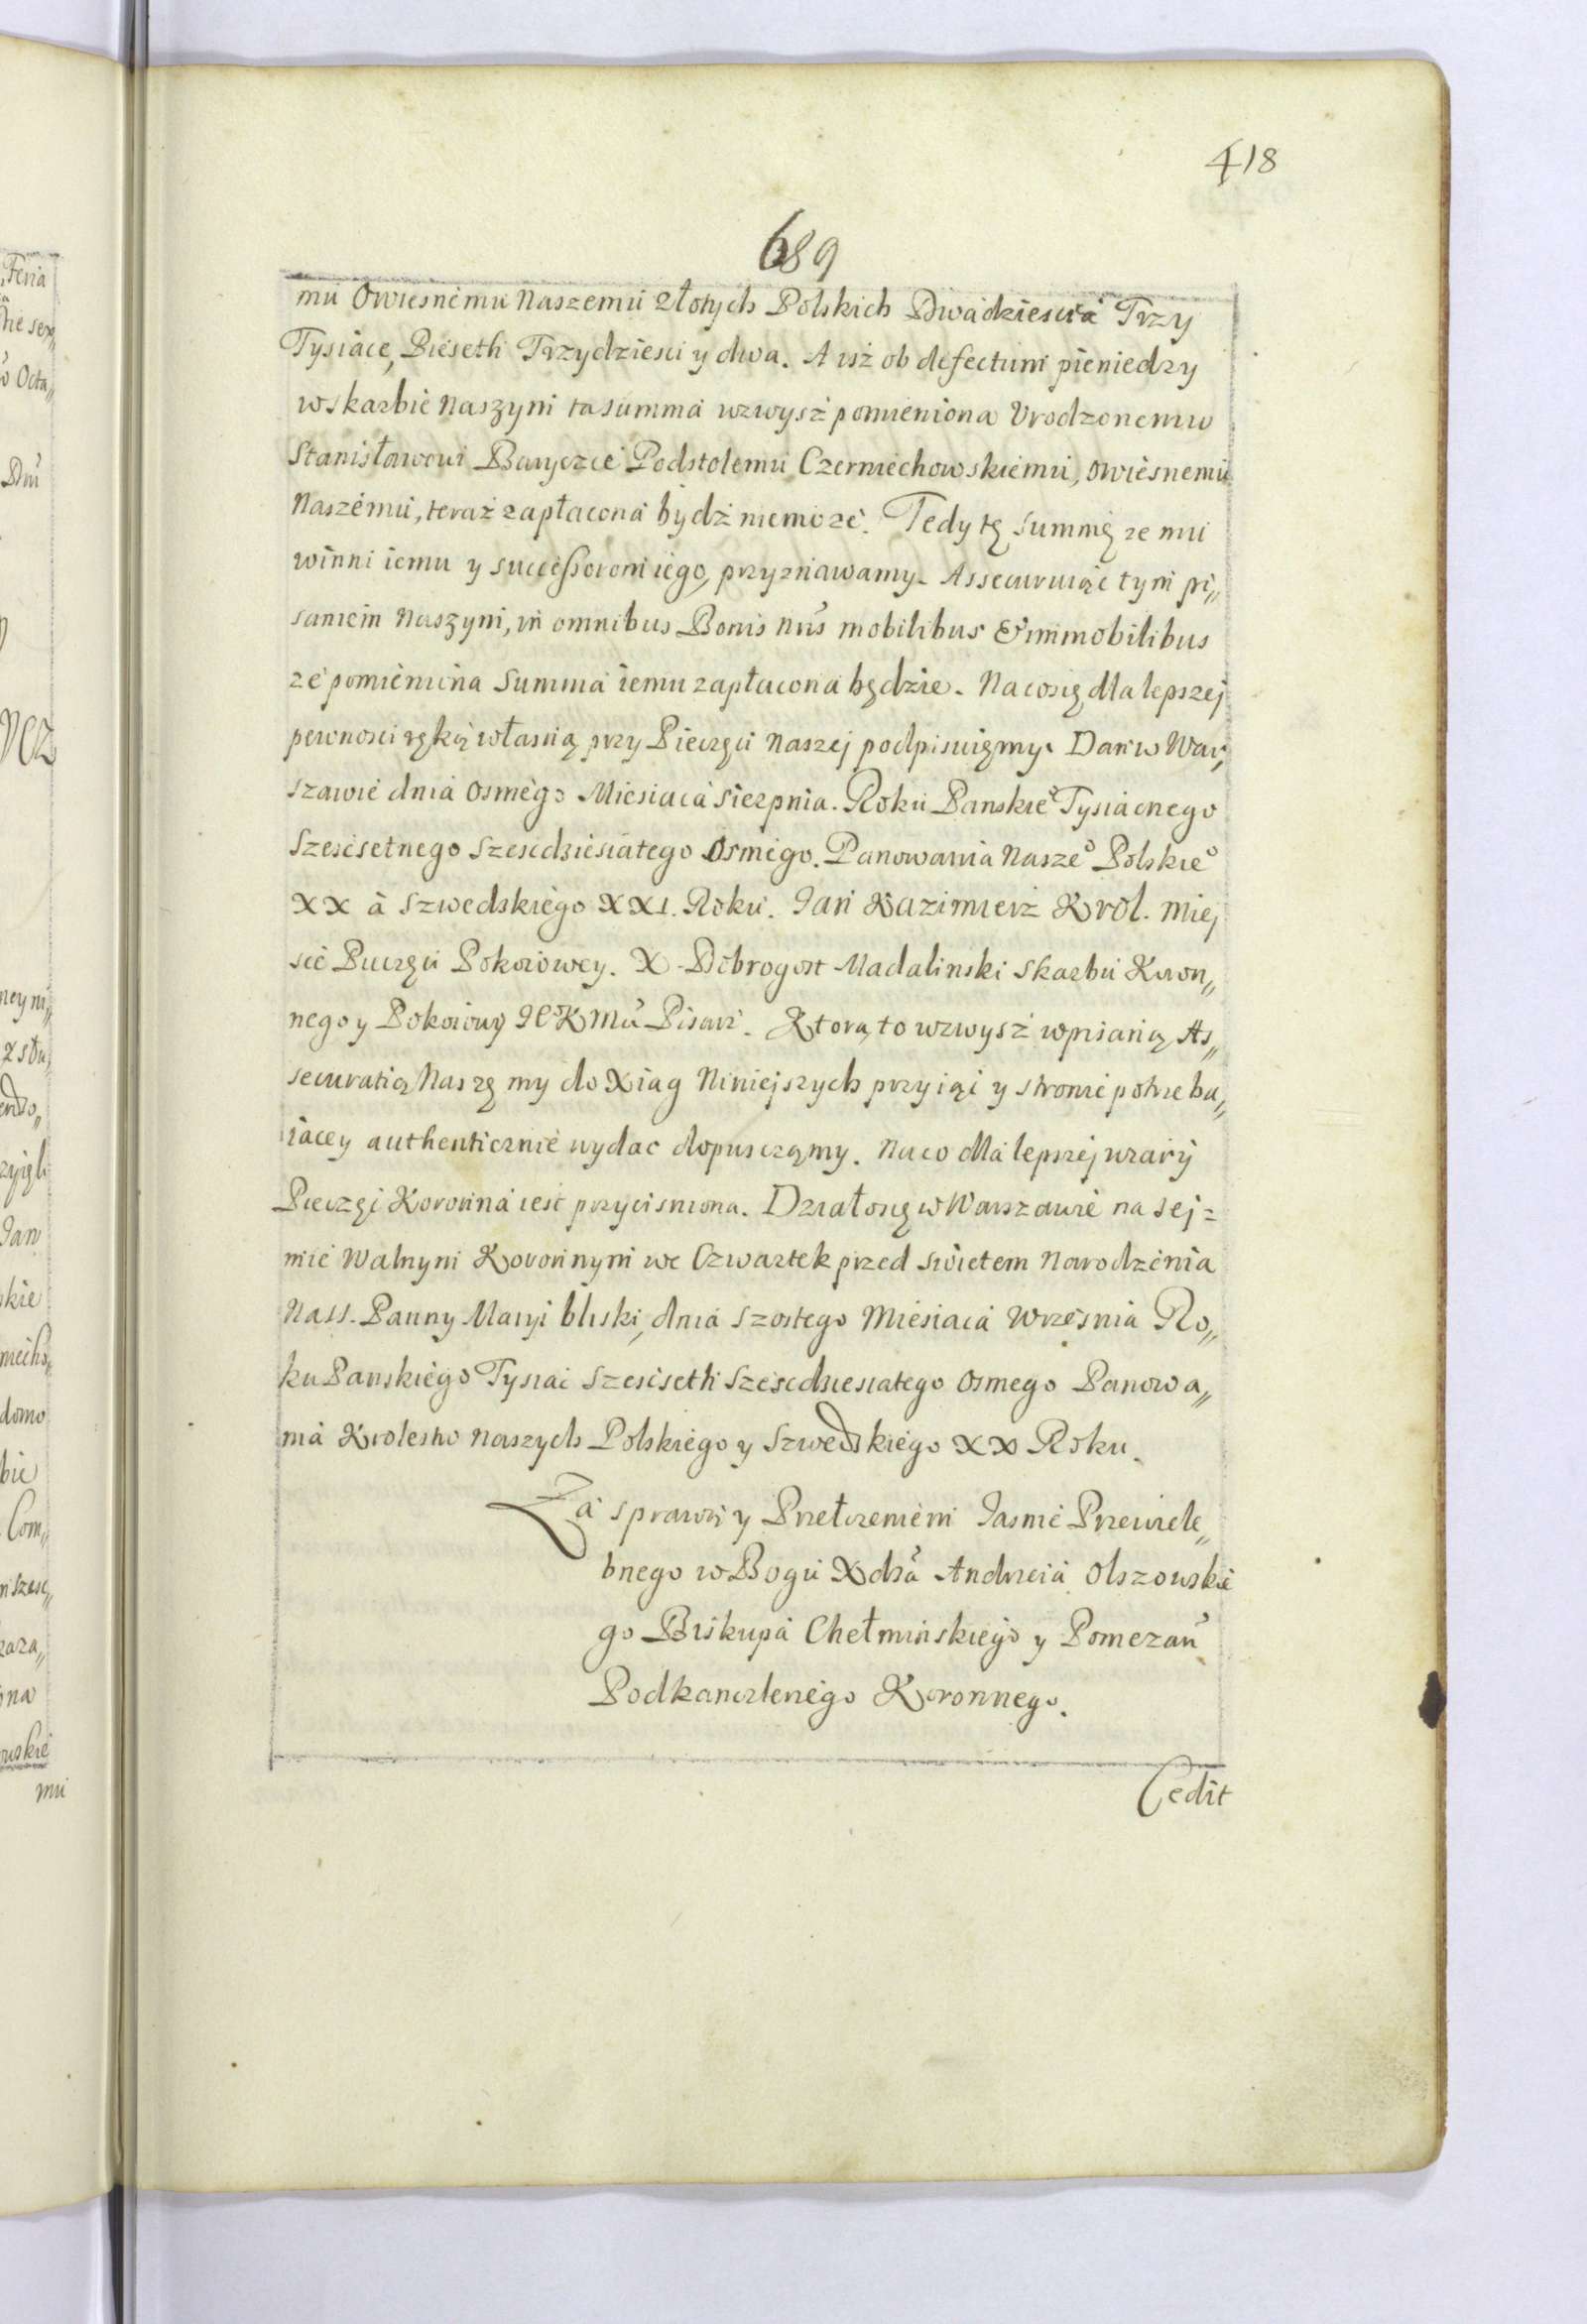 418
689
mu Owiesnemu Naszemu Złotych Polskich Dwadziescia Trzy
Tysiące, Pięseth Trzydziesci y dwa. A isż ob defectum pieniedzy
w skarbie Naszym ta summa wzwysż pomieniona Vrodzonemu
Stanisławowi Baryczce Podstolemu Czerniechowskiemu, owiesnemu
Naszemu, teraż zapłacona bydż niemoże. Tedy tę summę ze mu
winni iemu y successorom iego, przyznawamy. Assecuruiąc tym pi„
saniem Naszym, in omnibus Bonis Nris mobilibus & immobilibus
że pomieniona Summa iemu zapłacona będzie. Na co się dla lepszej
pewnosci ręką własną przy Pieczęci Naszej podpisuięmy. Dan w War„
szawie dnia Osmego Miesiaca Sierpnia. Roku Panskieº Tysiącnego
Szescsetnego Szescdziesiątego Osmego. Panowania Naszeº Polskieº
XX a Szwedskiego XXI. Roku. Jan Kazimierz Krol. Miej
sce Pieczęci Pokoiowey. X. Dobrogost Madalinski Skarbu Koron„
nego y Pokoiowy Jeº K Mci Pisarz. Ktorą to wzwysż wpisaną As„
securatią Naszę my do Xiąg Niniejszych przyiąć y stronie potrzebu„
iącey authenticznie wydac dopusczamy. Na co dla lepszej wiary
Pieczęć Koronna iest przycisniona. Działo się w Warszawie na Sej=
mie Walnym Koronnym we Czwartek przed Swietem Narodzenia
Nass. Panny Maryi bliski, dnia Szostego Miesiaca Wrzesnia Ro„
ku Panskiego Tysiąc Szescseth Szescdziesiątego Osmego Panowa„
nia Krolestw Naszych Polskiego y Szwedskiego XX Roku.
Za sprawą y Przełozeniem Jasnie Przewiele„
bnego w Bogu Xdza Andrzeia Olszowskie
go Biskupa Chełminskiego y Pomezan
Podkanclerzego Koronnego.
Cedit